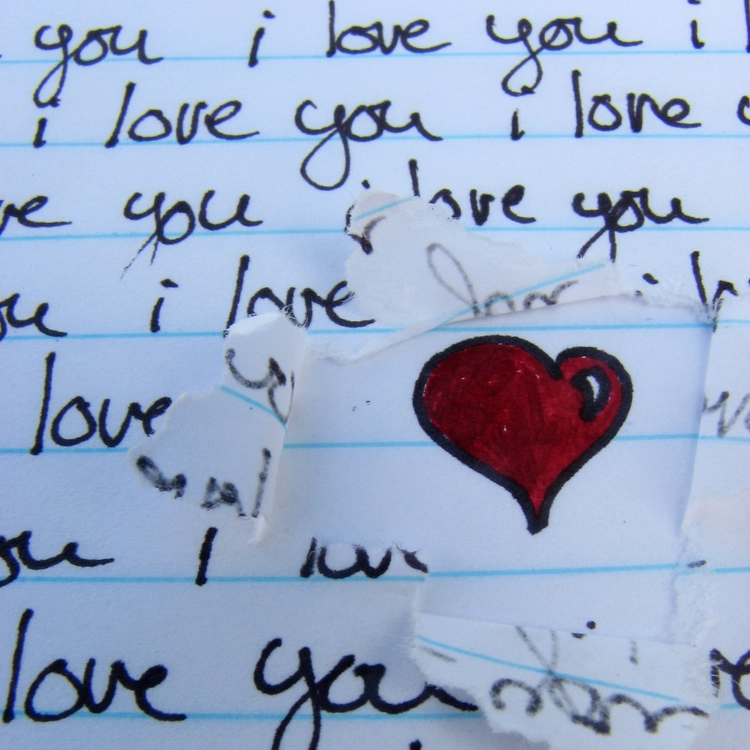 you i love you i
i love you i love
you i love you
i love i
love
i love
love you